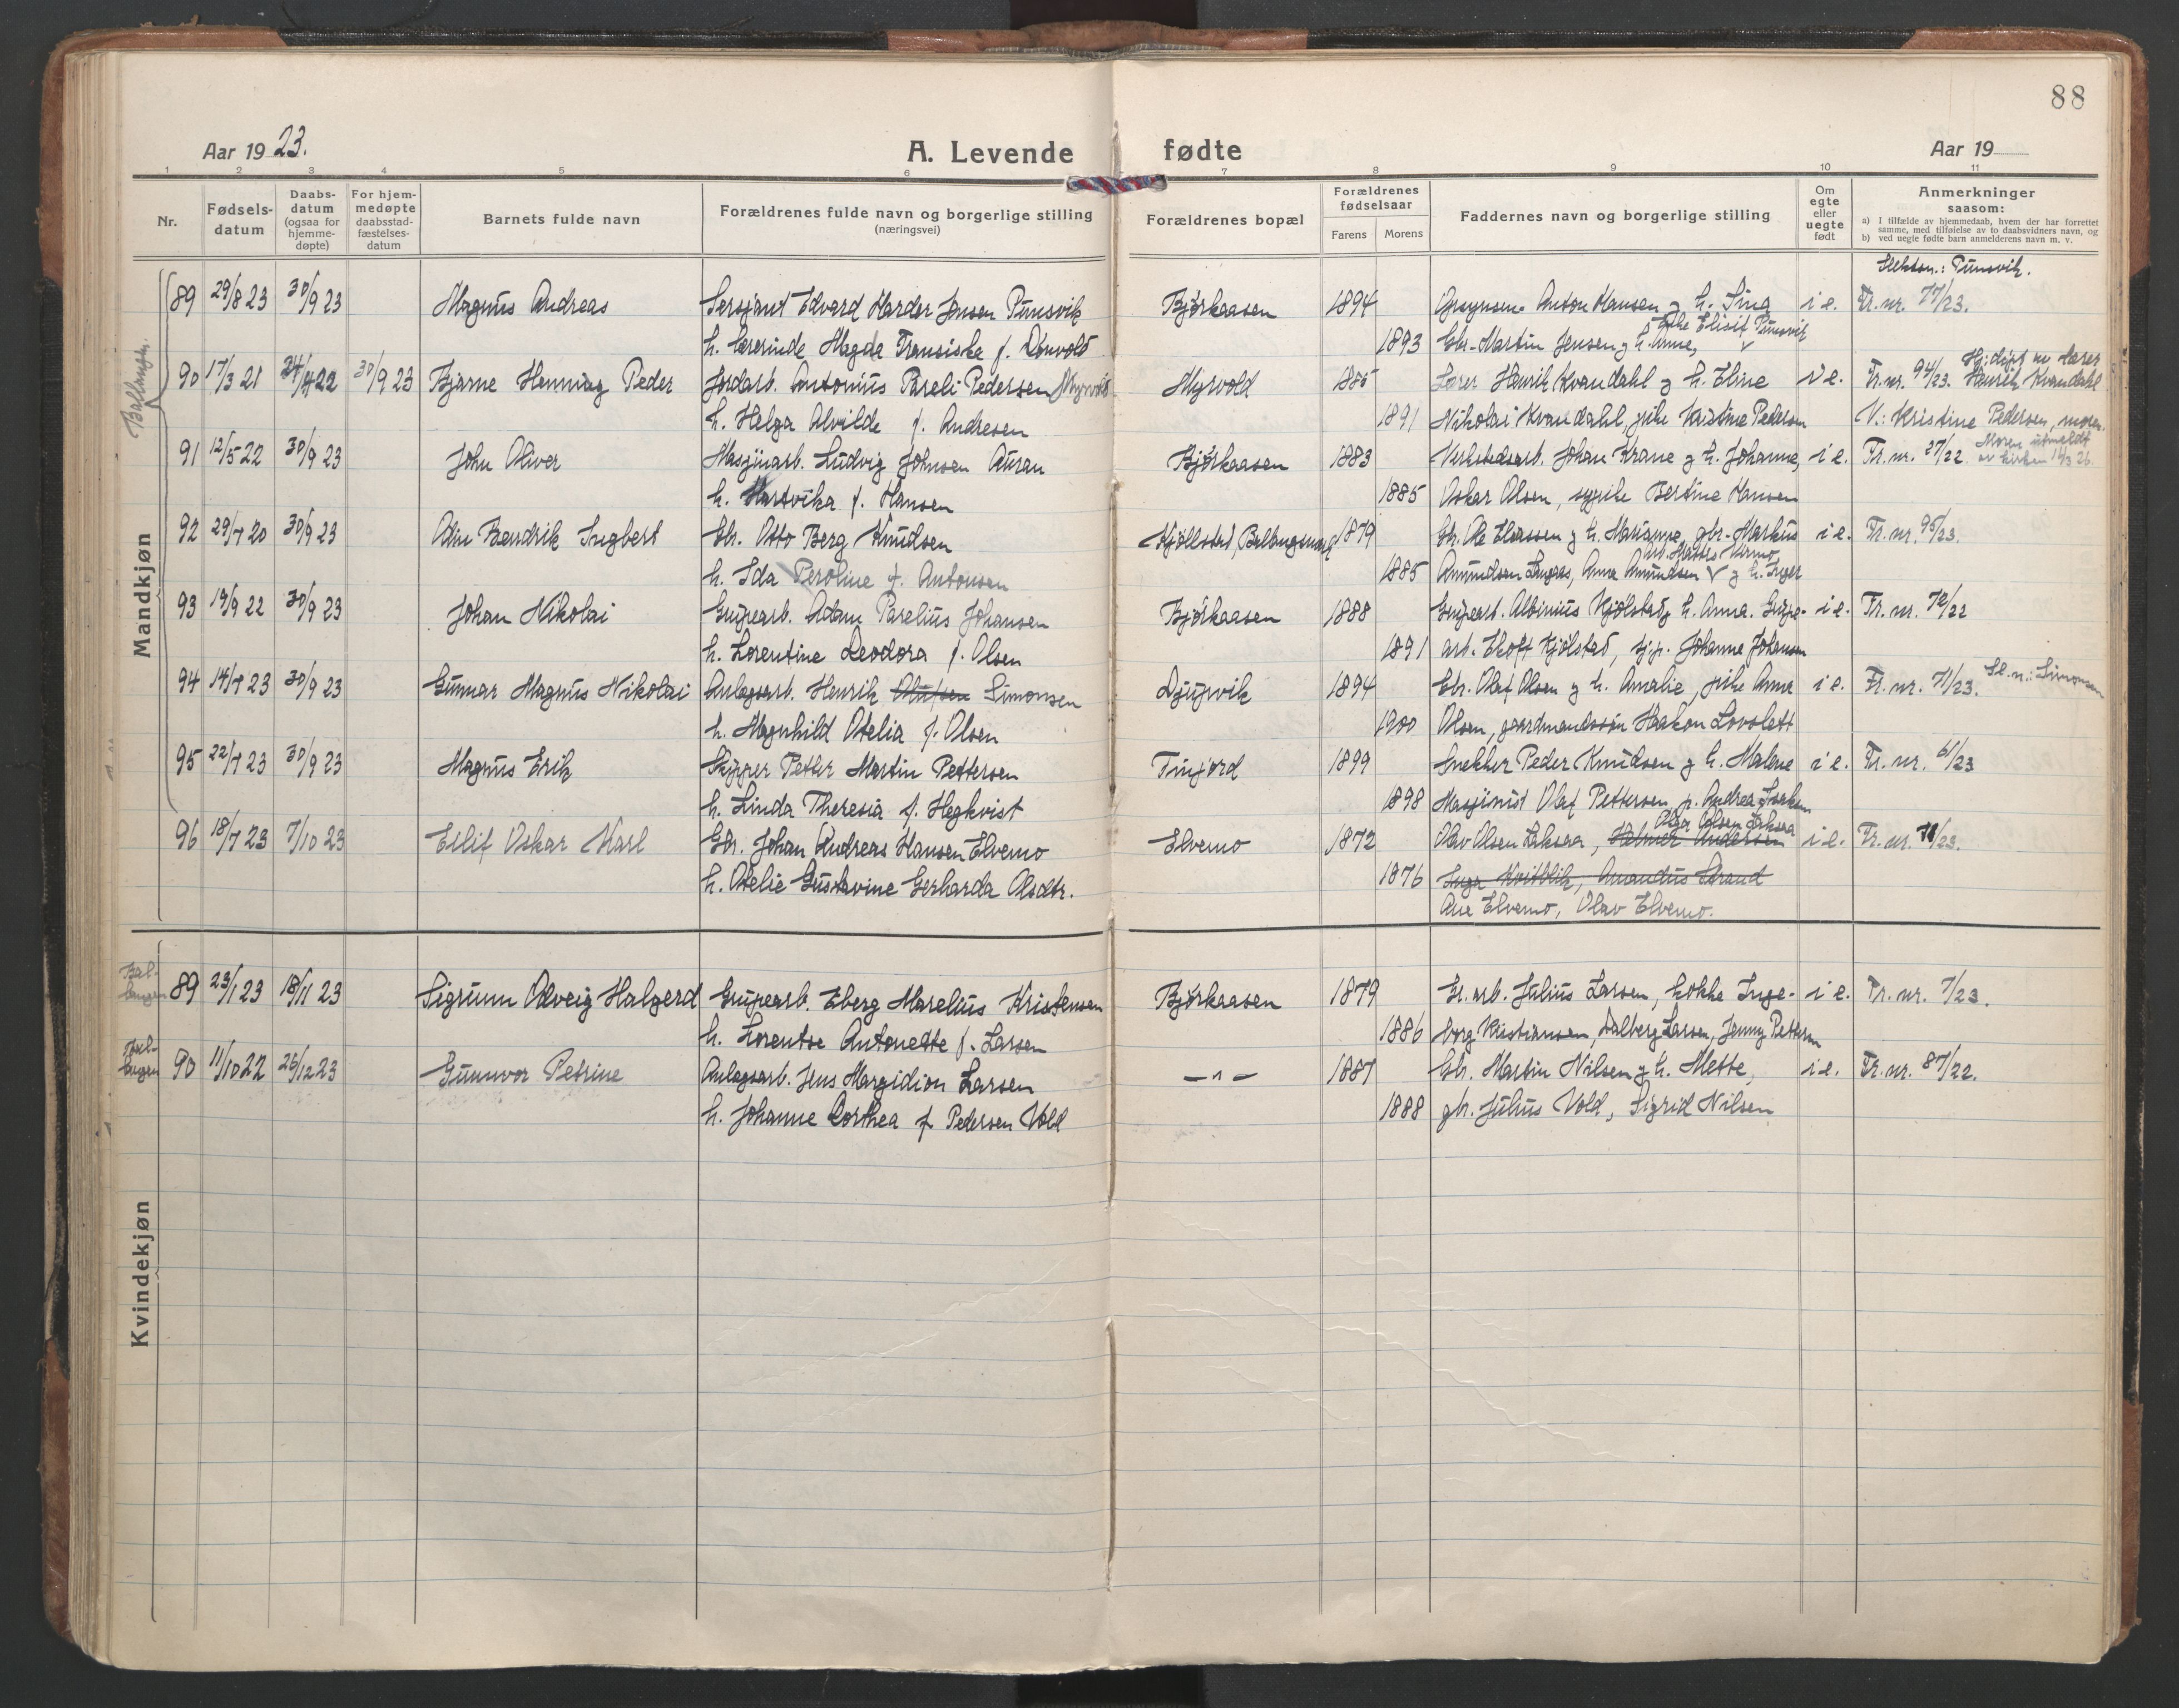 88
Aar 1923.
A. Levende fødte
Aar 19
1 2 3 4 5 6 7 8 9 10 11
Nr.
Fødsels-
datum
Daabs-
datum
(ogsaa for
hjemme-
døpte)
For hjem-
medøpte
daabsstad-
fæstelses-
datum
Barnets fulde navn
Forældrenes fulde navn og borgerlige stilling
(næringsvei)
Forældrenes bopæl
Forældrenes
fødselsaar
Farens Morens
Faddernes navn og borgerlige stilling
Om
egte
eller
uegte
født
Anmerkninger
saasom:
a) I tilfælde av hjemmedaab, hvem der har forrettet
samme, med tilføielse av to daabsvidners navn, og
b) ved uegte fødte barn anmelderens navn m. v.
Mandkjøn
Ballangen.
Slektsn.: Punsvik.
89 29/8 23 30/9 23 Magnus Andreas Sersjant Edvard Harder Jensen Punsvik Bjørkaasen 1894 Anton Hansen g h. Sina i e. Fr. nr. 77/23.
Elisif Punsvik
h. lærerinde Magda Fransiska f. Dønvold 1893 Gbr. Martin Jensen g h. Anna,
Hj.døpt av lærer
90 17/3 21 24/4 22 30/9 23 Bjarne Henning Peder Jordarb. Antonius Pareli Pedersen Myrvold Myrvold 1885 Lærer Henrik Kvandahl g h. Eline i e. Fr. nr. 94/23. Henrik Kvandahl
h. Helga Alvilde f. Andresen 1891 Nikolai Kvandahl, pike Kristine Pedersen V.: Kristine Pedersen, moren.
Moren utmeldt
91 12/5 22 30/9 23 John Oliver Masjinarb. Ludvig Johnsen Auran Bjørkaasen 1883 Verkstedsarb. Johan Krane g h. Johanne, i e. Fr. nr. 27/22. av kirken 14/3 26.
h. Hartvika f. Hansen 1885 Oskar Olsen, sypike Bertine Hansen
92 29/7 20 30/9 23 Odin Bendrik Ingbert Gbr. Otto Berg Knudsen Kjöllstad, Ballangsmark 1879 Gbr. Ole Eliassen g h. Marianne, gbr. Markus i e. Fr. nr. 95/23.
h. Ida Peroline f. Antonsen 1885 Amundsen, Anna Amundsen g h. Inger
93 19/9 22 30/9 23 Johan Nikolai Grupearb. Adam Parelius Johansen Bjørkaasen 1888 Grupearb. Albinius Kjölstad g h. Anna. Grupe- i e. Fr. nr. 72/22
h. Lorentine Leodora f. Olsen 1891 arb. Ekoff Kjölstad, Johanne Johansen
94 14/7 23 30/9 23 Gunnar Magnus Nikolai Anlagsarb. Henrik Olufsen Simonsen Djupvik 1894 Gbr. Olaf Olsen g h. Amalie, pike Anna i e. Fr. nr. 71/23. Sl. n.: Simonsen
h. Magnhild Otelia f. Olsen 1900 Olsen, gaardmandssøn Haakon Lovslett
95 22/7 23 30/9 23 Magnus Erik Skipper Petter Martin Pettersen Tinfjord 1899 Snekker Peder Knudsen g h. Malene i e. Fr. nr. 61/23
h. Linda Theresia f. Hegkvist 1898 Masjinist Olaf Pettersen, p. Andrea Isaksen
Olga Olsen Laksaa
96 18/7 23 7/10 23 Eilif Oskar Karl Gbr. Johan Andreas Hansen Elvemo Elvemo 1872 Olav Olsen Laksaa, Helmer Andersen i e. Fr. nr. 78/23.
h. Otelie Gustavine Gerharda Olsdtr. 1876 Inga Kvitblik, Amandus Strand
Ane Elvemo, Olav Elvemo.
Kvindekjøn
Bal-
langen 89 23/1 23 18/11 23 Sigrunn Solveig Halgerd Grupearb. Eberg Marelius Kristensen Bjørkaasen 1879 Gr. arb. Julius Larsen, kokke Inge- i e. Fr. nr. 7/23.
h. Lorentse Antonette f. Larsen 1886 borg Kristiansen, Dalberg Larsen, Jenny Pettersen
Bal-
langen 90 11/10 22 26/12 23 Gunnvor Petrine Anlagsarb. Jens Margidion Larsen — " — 1887 Gbr. Martin Nilsen g h. Mette, i e. Fr. nr. 87/22.
h. Johanne Dorthea f. Pedersen Vold 1888 gbr. Julius Vold, Sigrid Nilsen